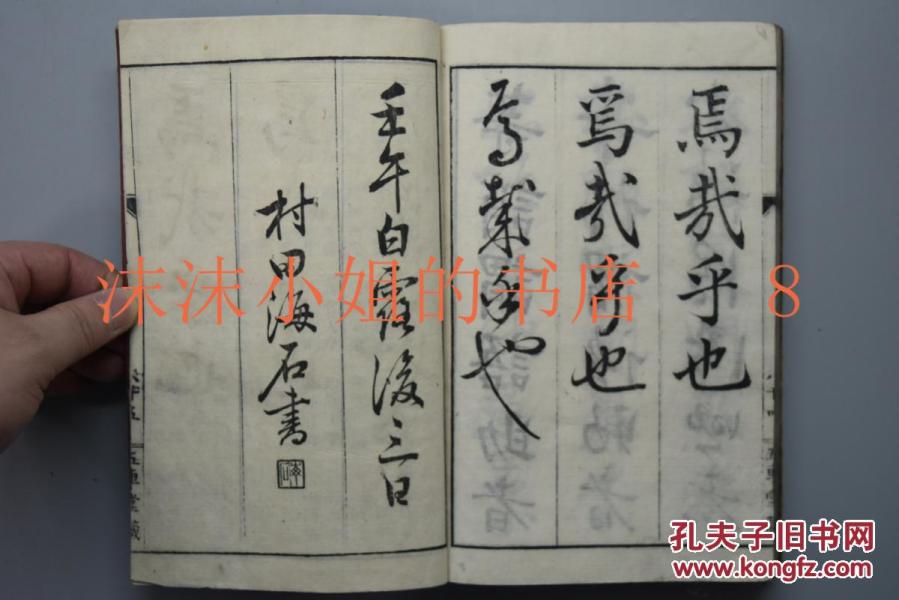 焉哉乎也
焉哉乎也
焉哉乎也
壬午白露後三日
村田海石書
沫沫小姐的书店 8
孔夫子旧书网
www.kongfz.com